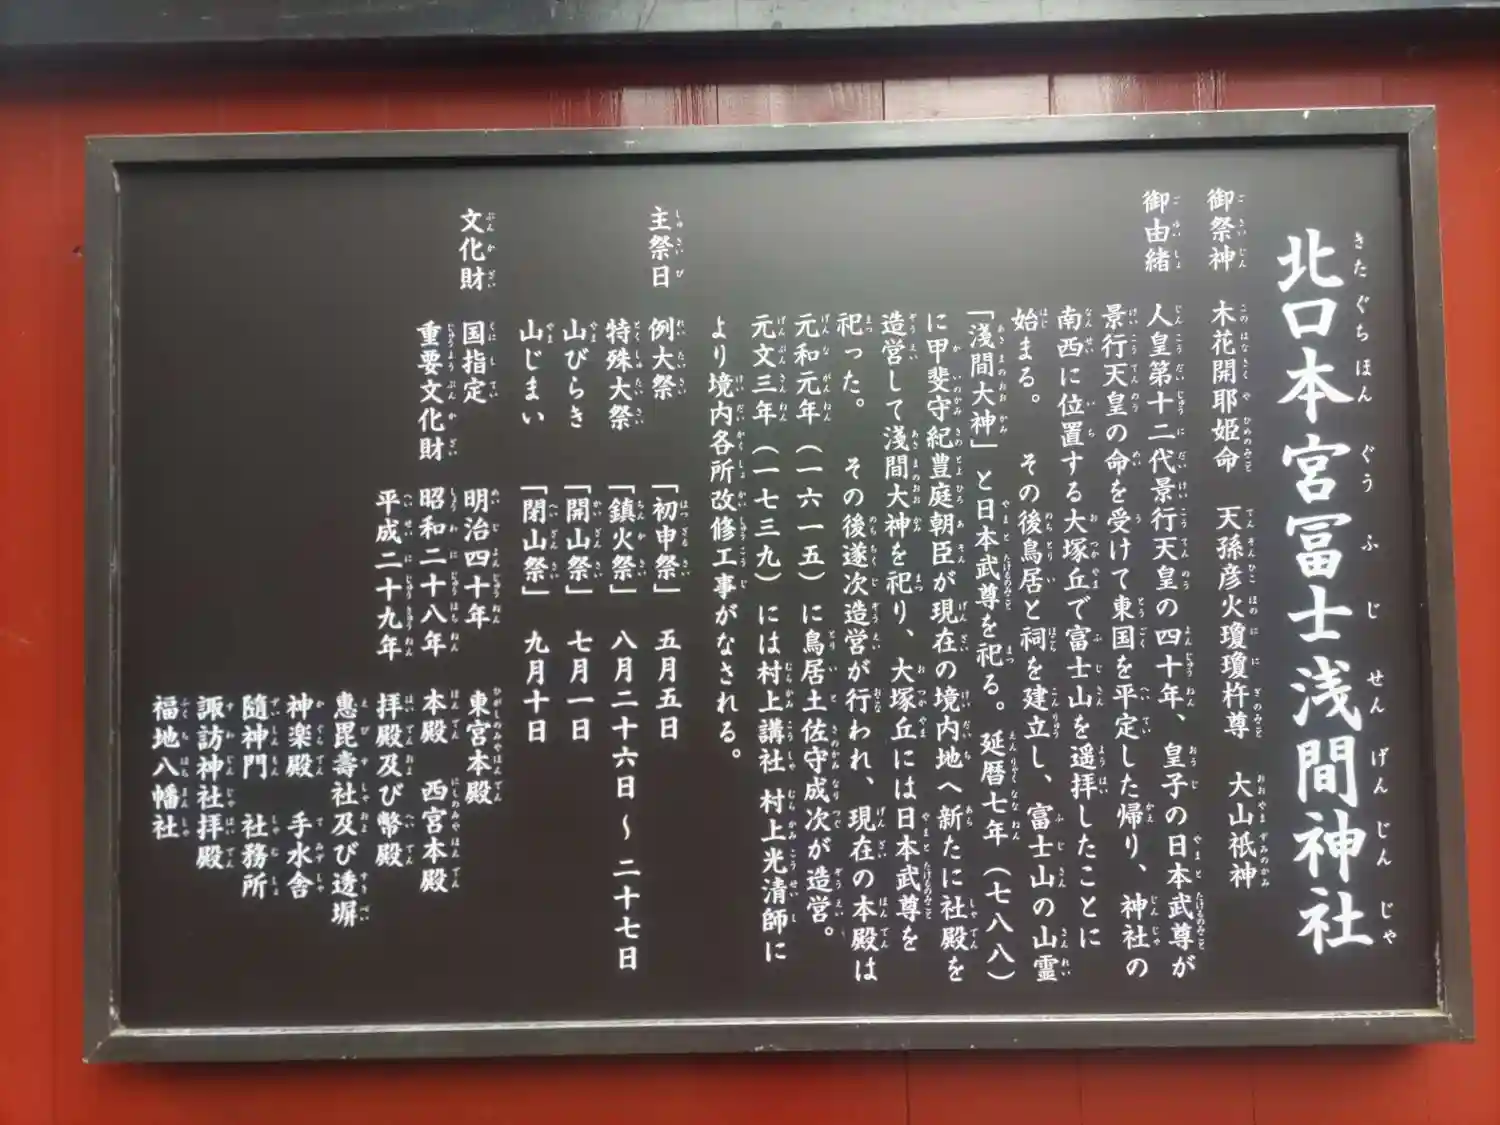 北口本宮冨士浅間神社
御祭神 木花開耶姫命 天孫彦火瓊瓊杵尊 大山祇神
御由緒 人皇第十二代景行天皇の四十年、皇子の日本武尊が
景行天皇の命を受けて東国を平定した帰り、神社の
南西に位置する大塚丘で富士山を遥拝したことに
始まる。 その後鳥居と祠を建立し、富士山の山霊
「淺間大神」と日本武尊を祀る。延暦七年(七八八)
に甲斐守紀豊庭朝臣が現在の境内地へ新たに社殿を
造営して淺間大神を祀り、大塚丘には日本武尊を
祀った。 その後遂次造営が行われ、現在の本殿は
元和元年(一六一五)に鳥居土佐守成次が造営。
元文三年(一七三九)には村上講社 村上光清師に
より境内各所改修工事がなされる。
主祭日 例大祭 「初申祭」 五月五日
特殊大祭 「鎮火祭」 八月二十六日~二十七日
山びらき 「開山祭」 七月一日
山じまい 「閉山祭」 九月十日
文化財 国指定 明治四十年 東宮本殿
重要文化財 昭和二十八年 本殿 西宮本殿
平成二十九年 拝殿及び幣殿
惠毘壽社及び透塀
神楽殿 手水舎
隨神門 社務所
諏訪神社拝殿
福地八幡社